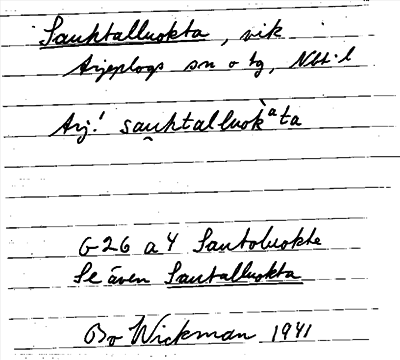 Sauktalluokta, vik
Arjeplogs sn o tg, Nbt. l
Arj.! sau̯ktalluokˋᵃta
G26 a4 Sautoluokte
Se även Sautalluokta
Bo Wickman 1941